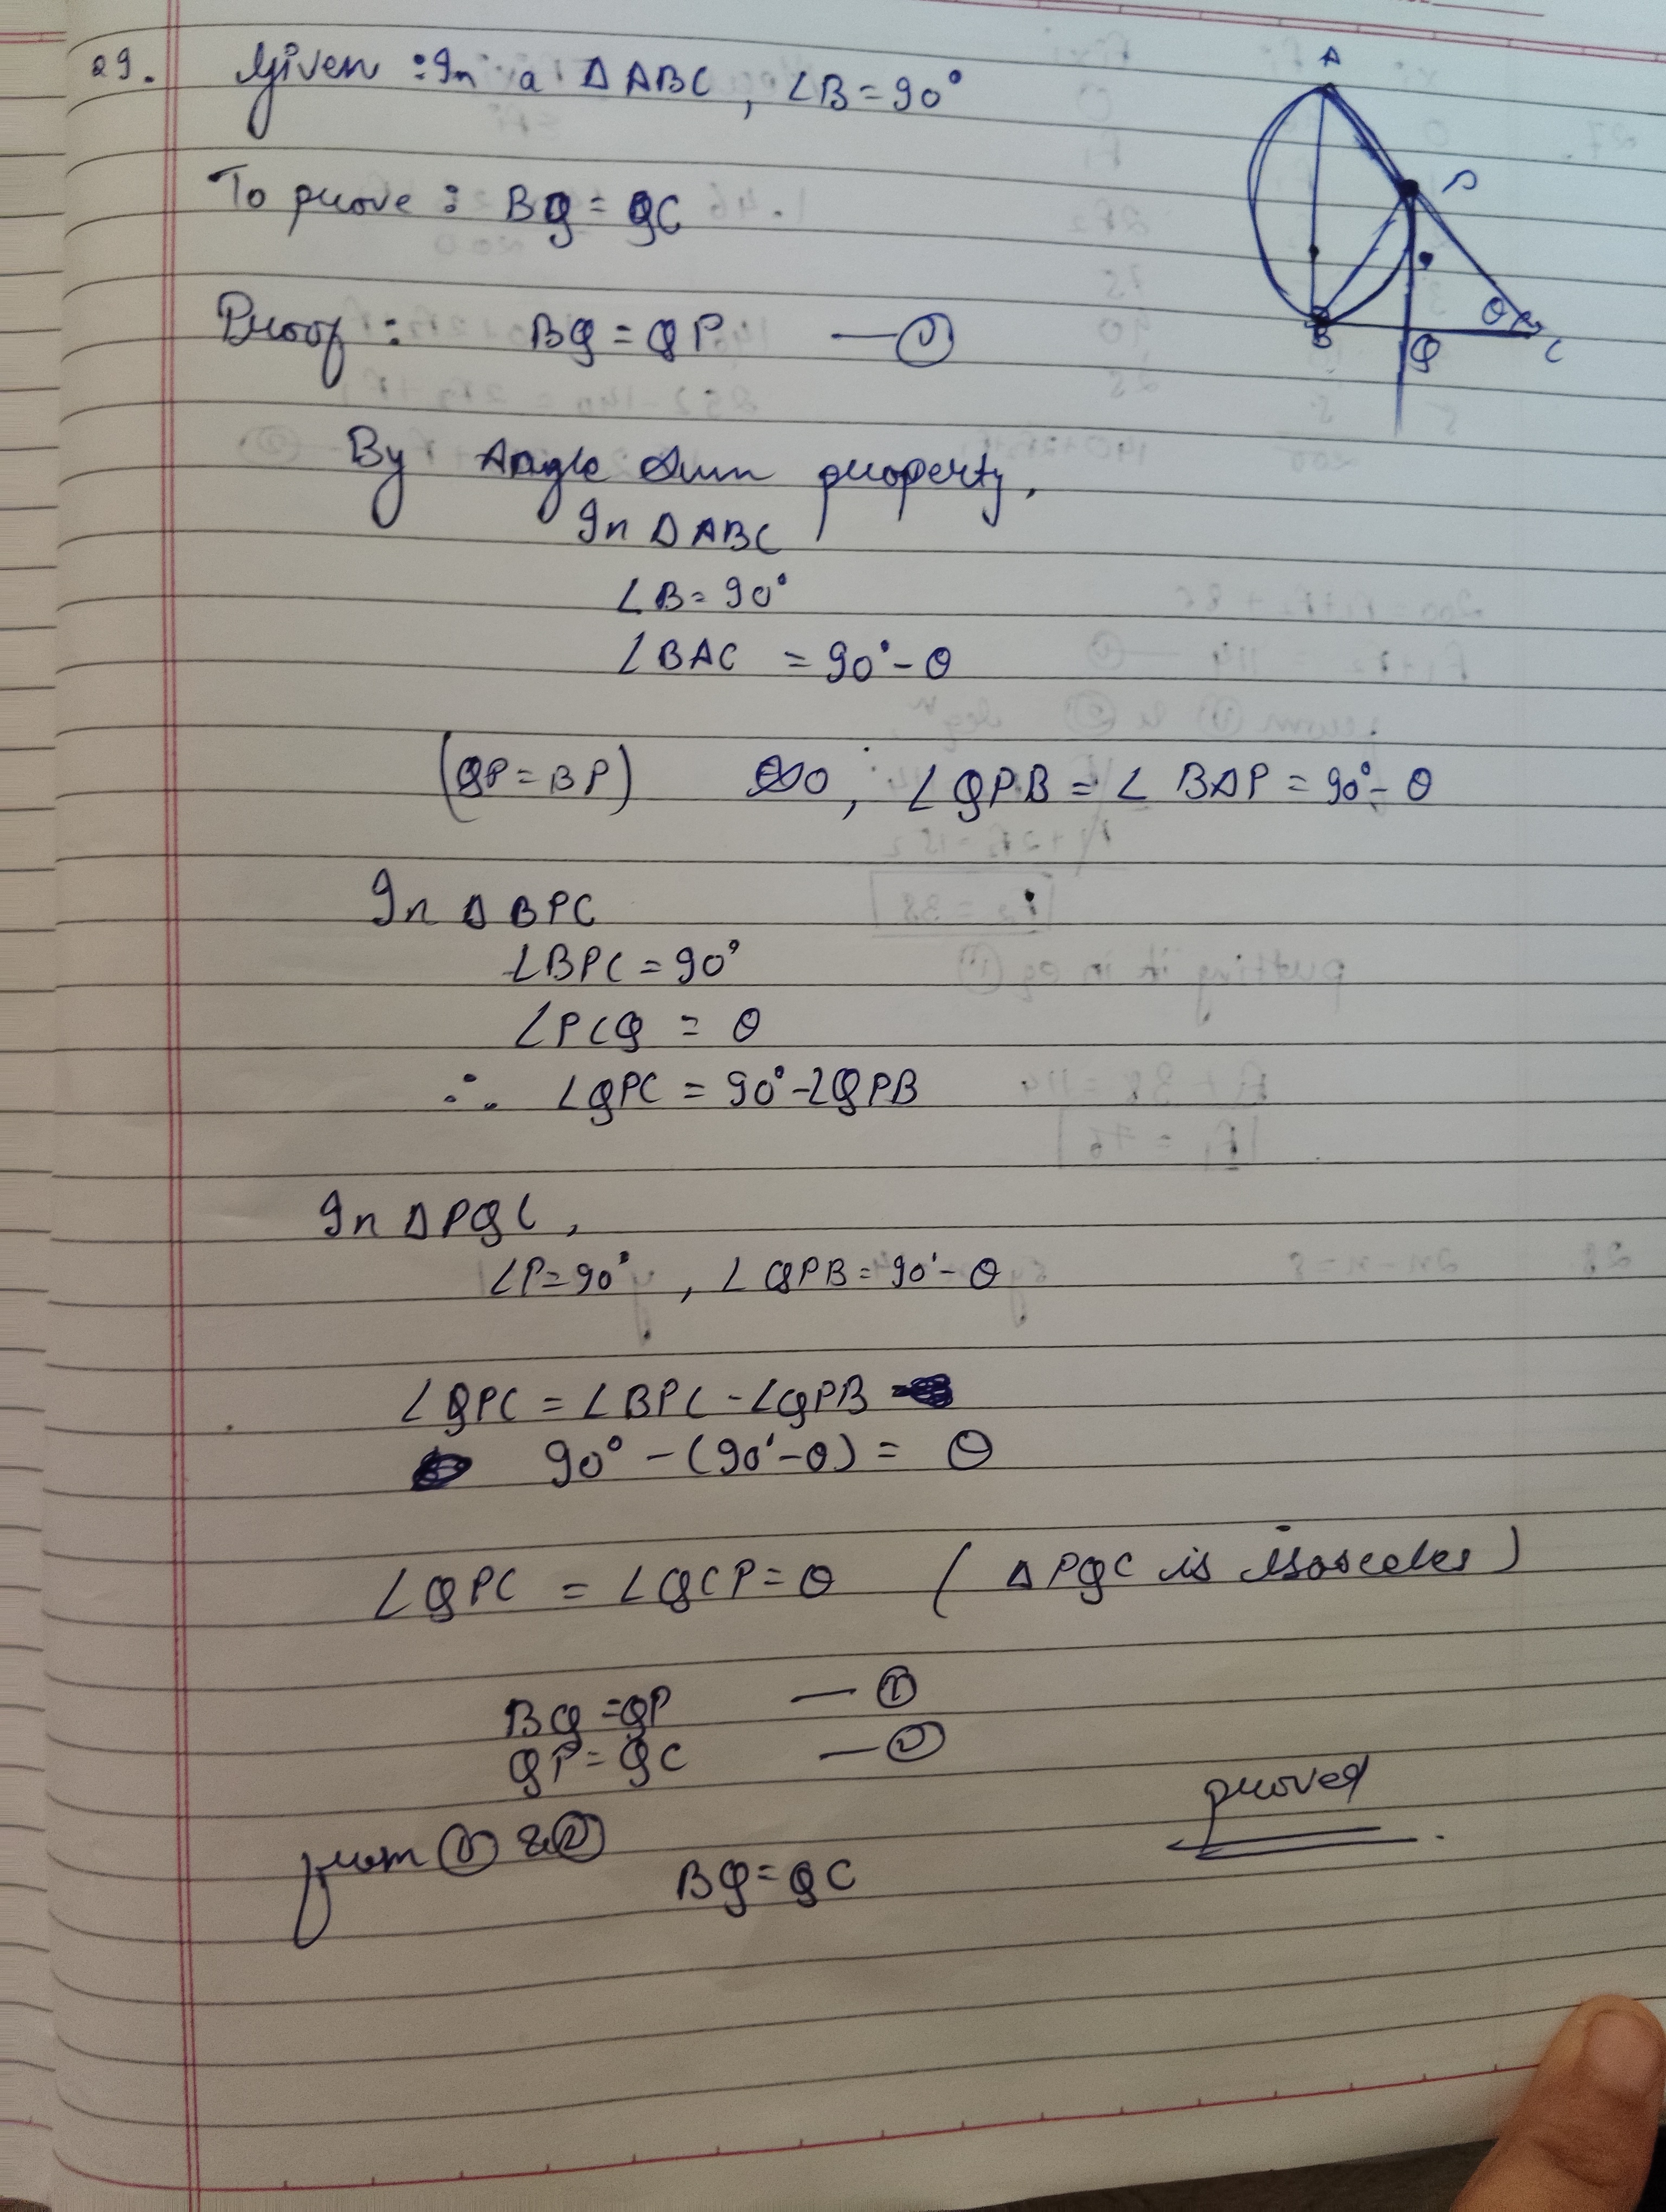 29. Given : In a Δ ABC, ∠B = 90°
To prove : BQ = QC
Proof : BQ = QP — ①
By Angle Sum property,
In Δ ABC
∠B = 90°
∠BAC = 90° - θ
(QP = BP) So, ∠QPB = ∠BAP = 90° - θ
In Δ BPC
∠BPC = 90°
∠PCQ = θ
∴ ∠QPC = 90° - ∠QPB
In Δ PQC,
∠P = 90°, ∠QPB = 90° - θ
∠QPC = ∠BPC - ∠QPB
90° - (90° - θ) = θ
∠QPC = ∠QCP = θ (Δ PQC is isosceles)
BQ = QP — ①
QP = QC — ②
from ① & ②
BQ = QC
proved
A
P
B
Q
θ
C